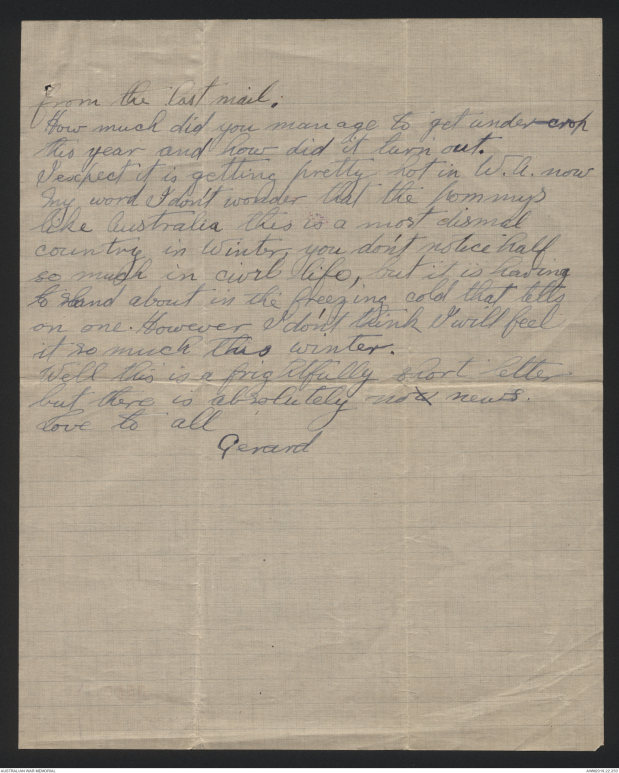 from the last mail.
How much did you manage to get under crop
this year and how did it turn out.
I expect it is getting pretty hot in W.A. now
My word I don't wonder that the pommys
like Australia this is a most dismal
country in Winter, you don't notice half
so much in civil life, but it is having
to stand about in the freezing cold that tells
on one. However I don't think I will feel
it so much this winter.
Well this is a frightfully short letter
but there is absolutely no news.
Love to all
Gerard
AUSTRALIAN WAR MEMORIAL